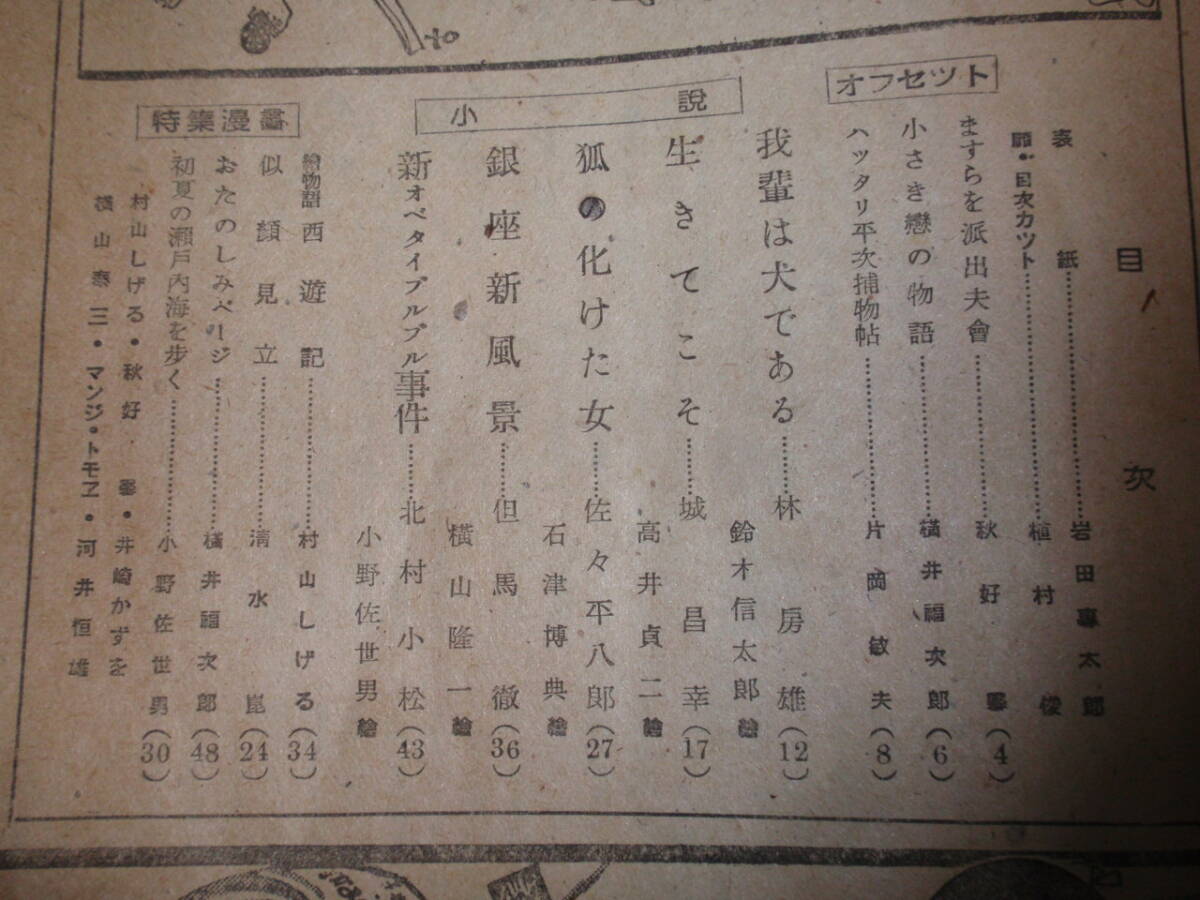 目次
表紙…………岩田專太郎
扉・目次カツト…………植村俊
オフセツト
ますらを派出夫會…………秋好馨(4)
小さき戀の物語…………橫井福次郎(6)
ハツタリ平次捕物帖…………片岡敏夫(8)
小説
我輩は犬である………林房雄(12)
鈴木信太郎繪
生きてこそ………城昌幸(17)
高井貞二繪
狐の化けた女………佐々平八郎(27)
石津博典繪
銀座新風景………但馬徹(36)
橫山隆一繪
新オベタイブルブル事件………北村小松(43)
小野佐世男繪
特集漫畵
繪物語西遊記…………村山しげる(34)
似顏見立…………淸水崑(24)
おたのしみページ…………橫井福次郎(48)
初夏の瀬戸内海を歩く…………小野佐世男(30)
村山しげる・秋好馨・井崎かずを
橫山泰三・マンジ・トモヱ・河井恒雄